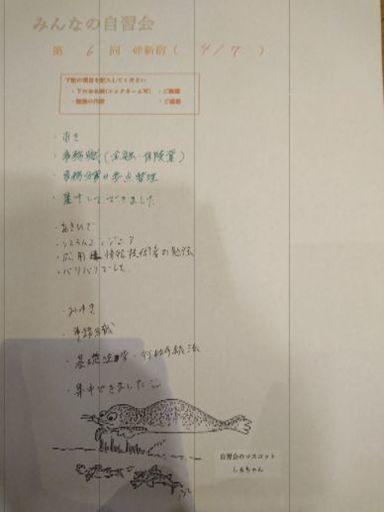 みんなの自習会
第 6 回 @新宿 ( 4/7 )
下記の項目を記入してください
・下のお名前(ニックネーム可) ・ご職業
・勉強の内容 ・ご感想
・事務職 (金融・保険業)
・集中してできました
・あきひで
・システムエンジニア
・応用情報技術者の勉強
・バリバリでした
・みゆき
・事務職
・基礎法学・行政手続法
・集中できました
自習会のマスコット
しおちゃん